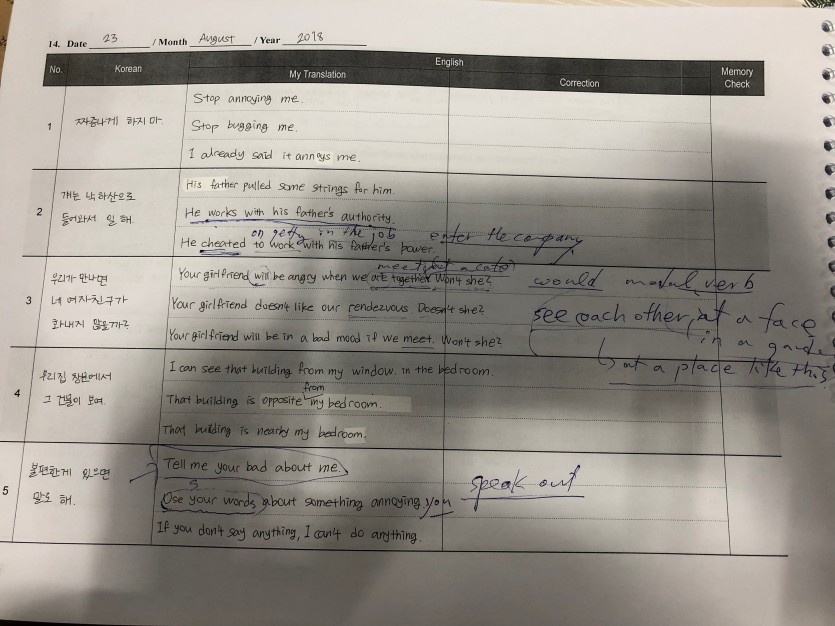 14. Date 23 / Month August / Year 2018
No. Korean English Memory Check
My Translation Correction
1 짜증나게 하지 마.
Stop annoying me.
Stop bugging me.
I already said it annoys me.
2 걔는 낙하산으로
들어와서 일 해.
His father pulled some strings for him.
He works with his father's authority.
on getty in the job enter the company
He cheated to work with his father's power.
3 우리가 만나면
네 여자친구가
화내지 않을까?
meet at a cafe
Your girlfriend will be angry when we are together Won't she?
would modal verb
Your girlfriend doesn't like our rendezvous Doesn't she?
see each other, at a face
in a garde
Your girlfriend will be in a bad mood if we meet. Won't she?
at a place like this
4 우리집 창문에서
그 건물이 보여.
I can see that building from my window. in the bedroom.
from
That building is opposite my bedroom.
That building is nearby my bedroom.
5 불편한게 있으면
말로 해.
Tell me your bad about me.
s
Use your words about something annoying you
speak out
If you don't say anything, I can't do anything.